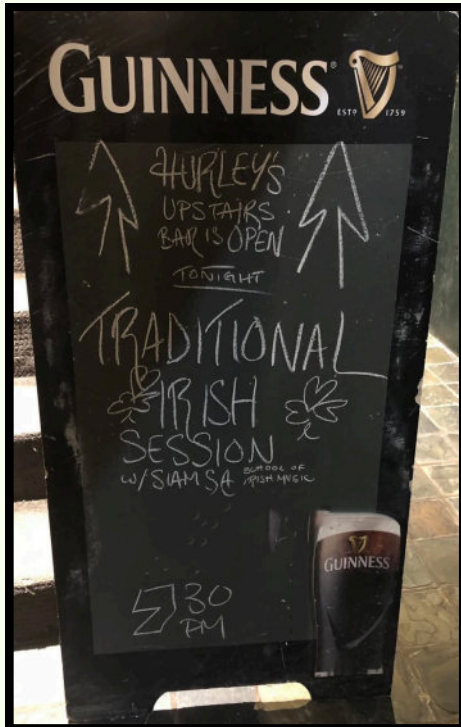 GUINNESS
ESTD 1759
HURLEY'S
UPSTAIRS
BAR IS OPEN
TONIGHT
TRADITIONAL
IRISH
SESSION
W/ SIAMSA SCHOOL OF
IRISH MUSIC
GUINNESS
30
PM